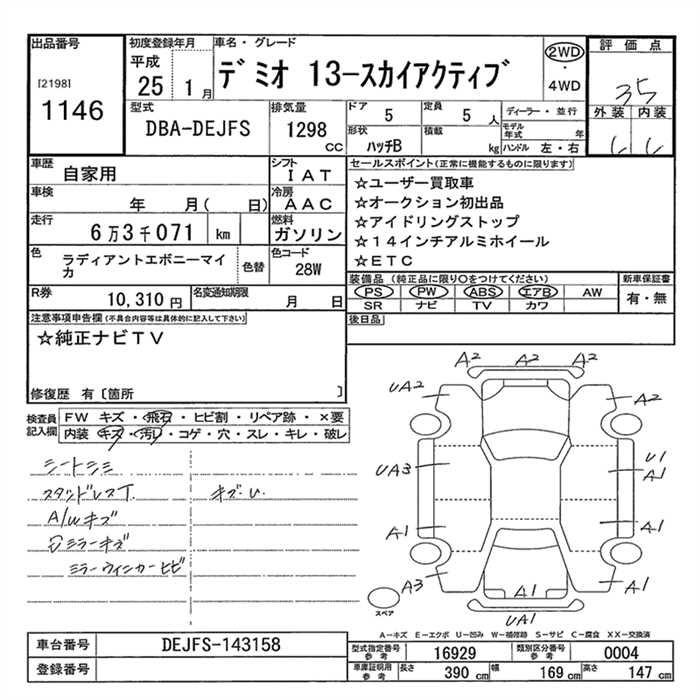 出品番号
[2198]
1146
初度登録年月
平成
25 1月
車名・グレード
デミオ 13-スカイアクティブ
2WD
・
4WD
評価点
35
外装 内装
型式
DBA-DEJFS
排気量
1298
CC
ドア
5
定員
5 人
形状
ハッチB
積載
kg
ディーラー・並行
モデル年式 年
ハンドル 左・右
車歴
自家用
シフト
I A T
車検
年 月( 日)
冷房
A A C
走行
6万3千071 km
燃料
ガソリン
色
ラディアントエボニーマイカ
色替
色コード
28W
R券
10,310円
名変通知期限
月 日
セールスポイント(正常に機能するものに限ります)
☆ユーザー買取車
☆オークション初出品
☆アイドリングストップ
☆14インチアルミホイール
☆ETC
装備品(純正品に限り○をつけてください)
PS PW ABS エアB AW
SR ナビ TV カワ
新車保証書
有・無
後日品
注意事項申告欄(不具合内容等は具体的に記入して下さい)
☆純正ナビTV
修復歴 有〔箇所 〕
検査員記入欄
FW キズ・飛石・ヒビ割・リペア跡・×要
内装・キズ・汚レ・コゲ・穴・スレ・キレ・破レ
シートシミ
スタッドレスT.
キズ・U
A/wキズ
ミラーキズ
ミラーウィンカーヒビ
A2 A2 A2
UA2
A2
UA3
U1
A1
A1
A1
A3
A1
A1
UA1
スペア
A-キズ E-エクボ U-凹み W-補修跡 S-サビ C-腐食 XX-交換済
車台番号
DEJFS-143158
登録番号
型式指定番号
参考
16929
類別区分番号
参考
0004
車庫証明用
参考
長さ
390 cm
幅
169 cm
高さ
147 cm